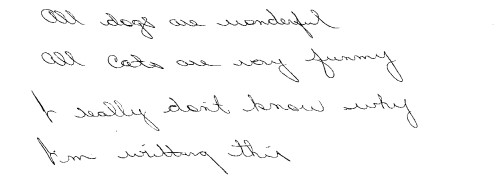 All dogs are wonderful
All cats are very funny
I really don't know why
I'm writting this